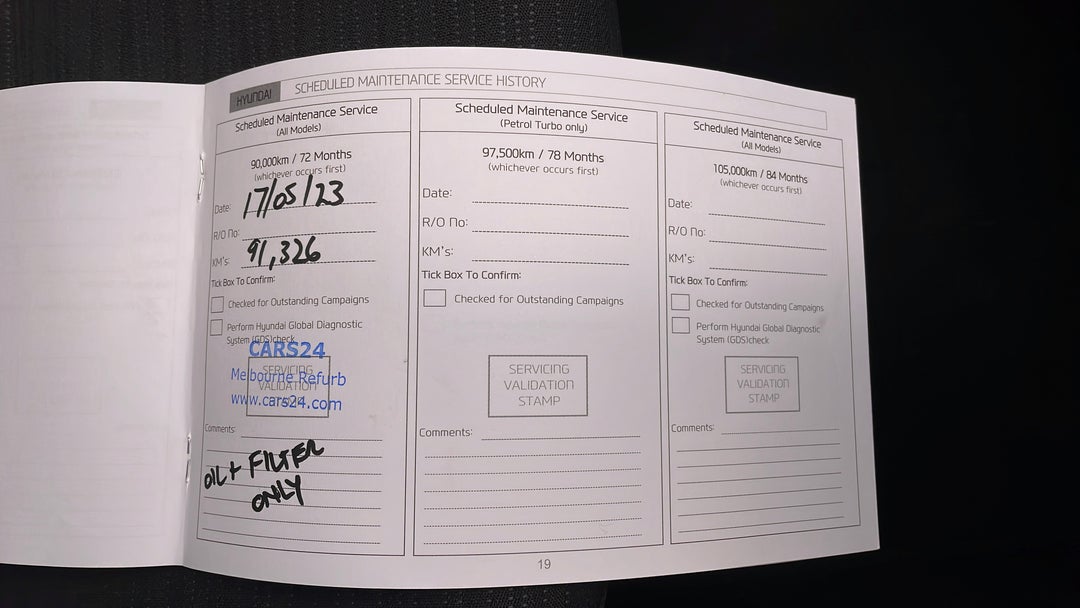 HYUNDAI SCHEDULED MAINTENANCE SERVICE HISTORY
Scheduled Maintenance Service
(All Models)
90,000km / 72 Months
(whichever occurs first)
Date: 17/05/23
R/O No:
KM's: 91,326
Tick Box To Confirm:
Checked for Outstanding Campaigns
Perform Hyundai Global Diagnostic
System (GDS)check
CARS24
SERVICING
Melbourne Refurb
VALIDATION
www.cars24.com
Comments:
OIL + FILTER
ONLY
Scheduled Maintenance Service
(Petrol Turbo only)
97,500km / 78 Months
(whichever occurs first)
Date:
R/O No:
KM's:
Tick Box To Confirm:
Checked for Outstanding Campaigns
SERVICING
VALIDATION
STAMP
Comments:
Scheduled Maintenance Service
(All Models)
105,000km / 84 Months
(whichever occurs first)
Date:
R/O No:
KM's:
Tick Box To Confirm:
Checked for Outstanding Campaigns
Perform Hyundai Global Diagnostic
System (GDS)check
SERVICING
VALIDATION
STAMP
Comments:
19